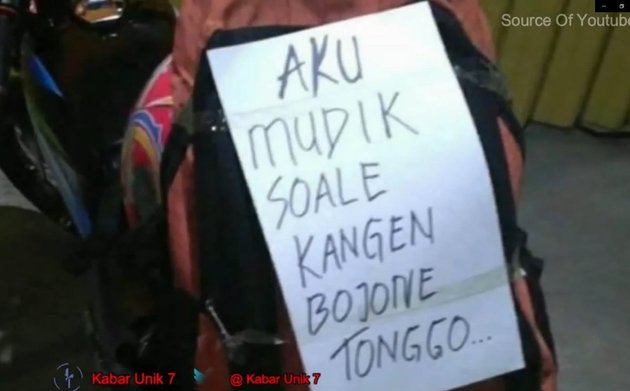 Source Of Youtube
AKU
MUDIK
SOALE
KANGEN
BOJONE
TONGGO...
Kabar Unik 7
@ Kabar Unik 7